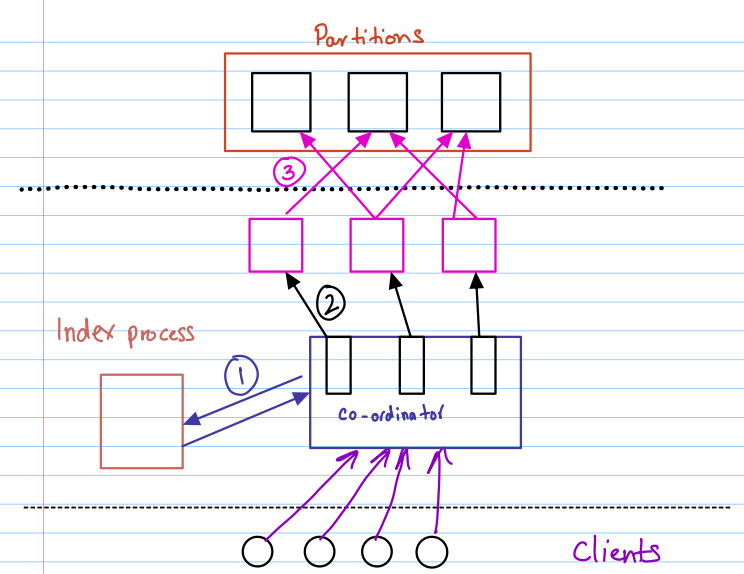 Partitions
3
2
Index process
1
co-ordinator
Clients